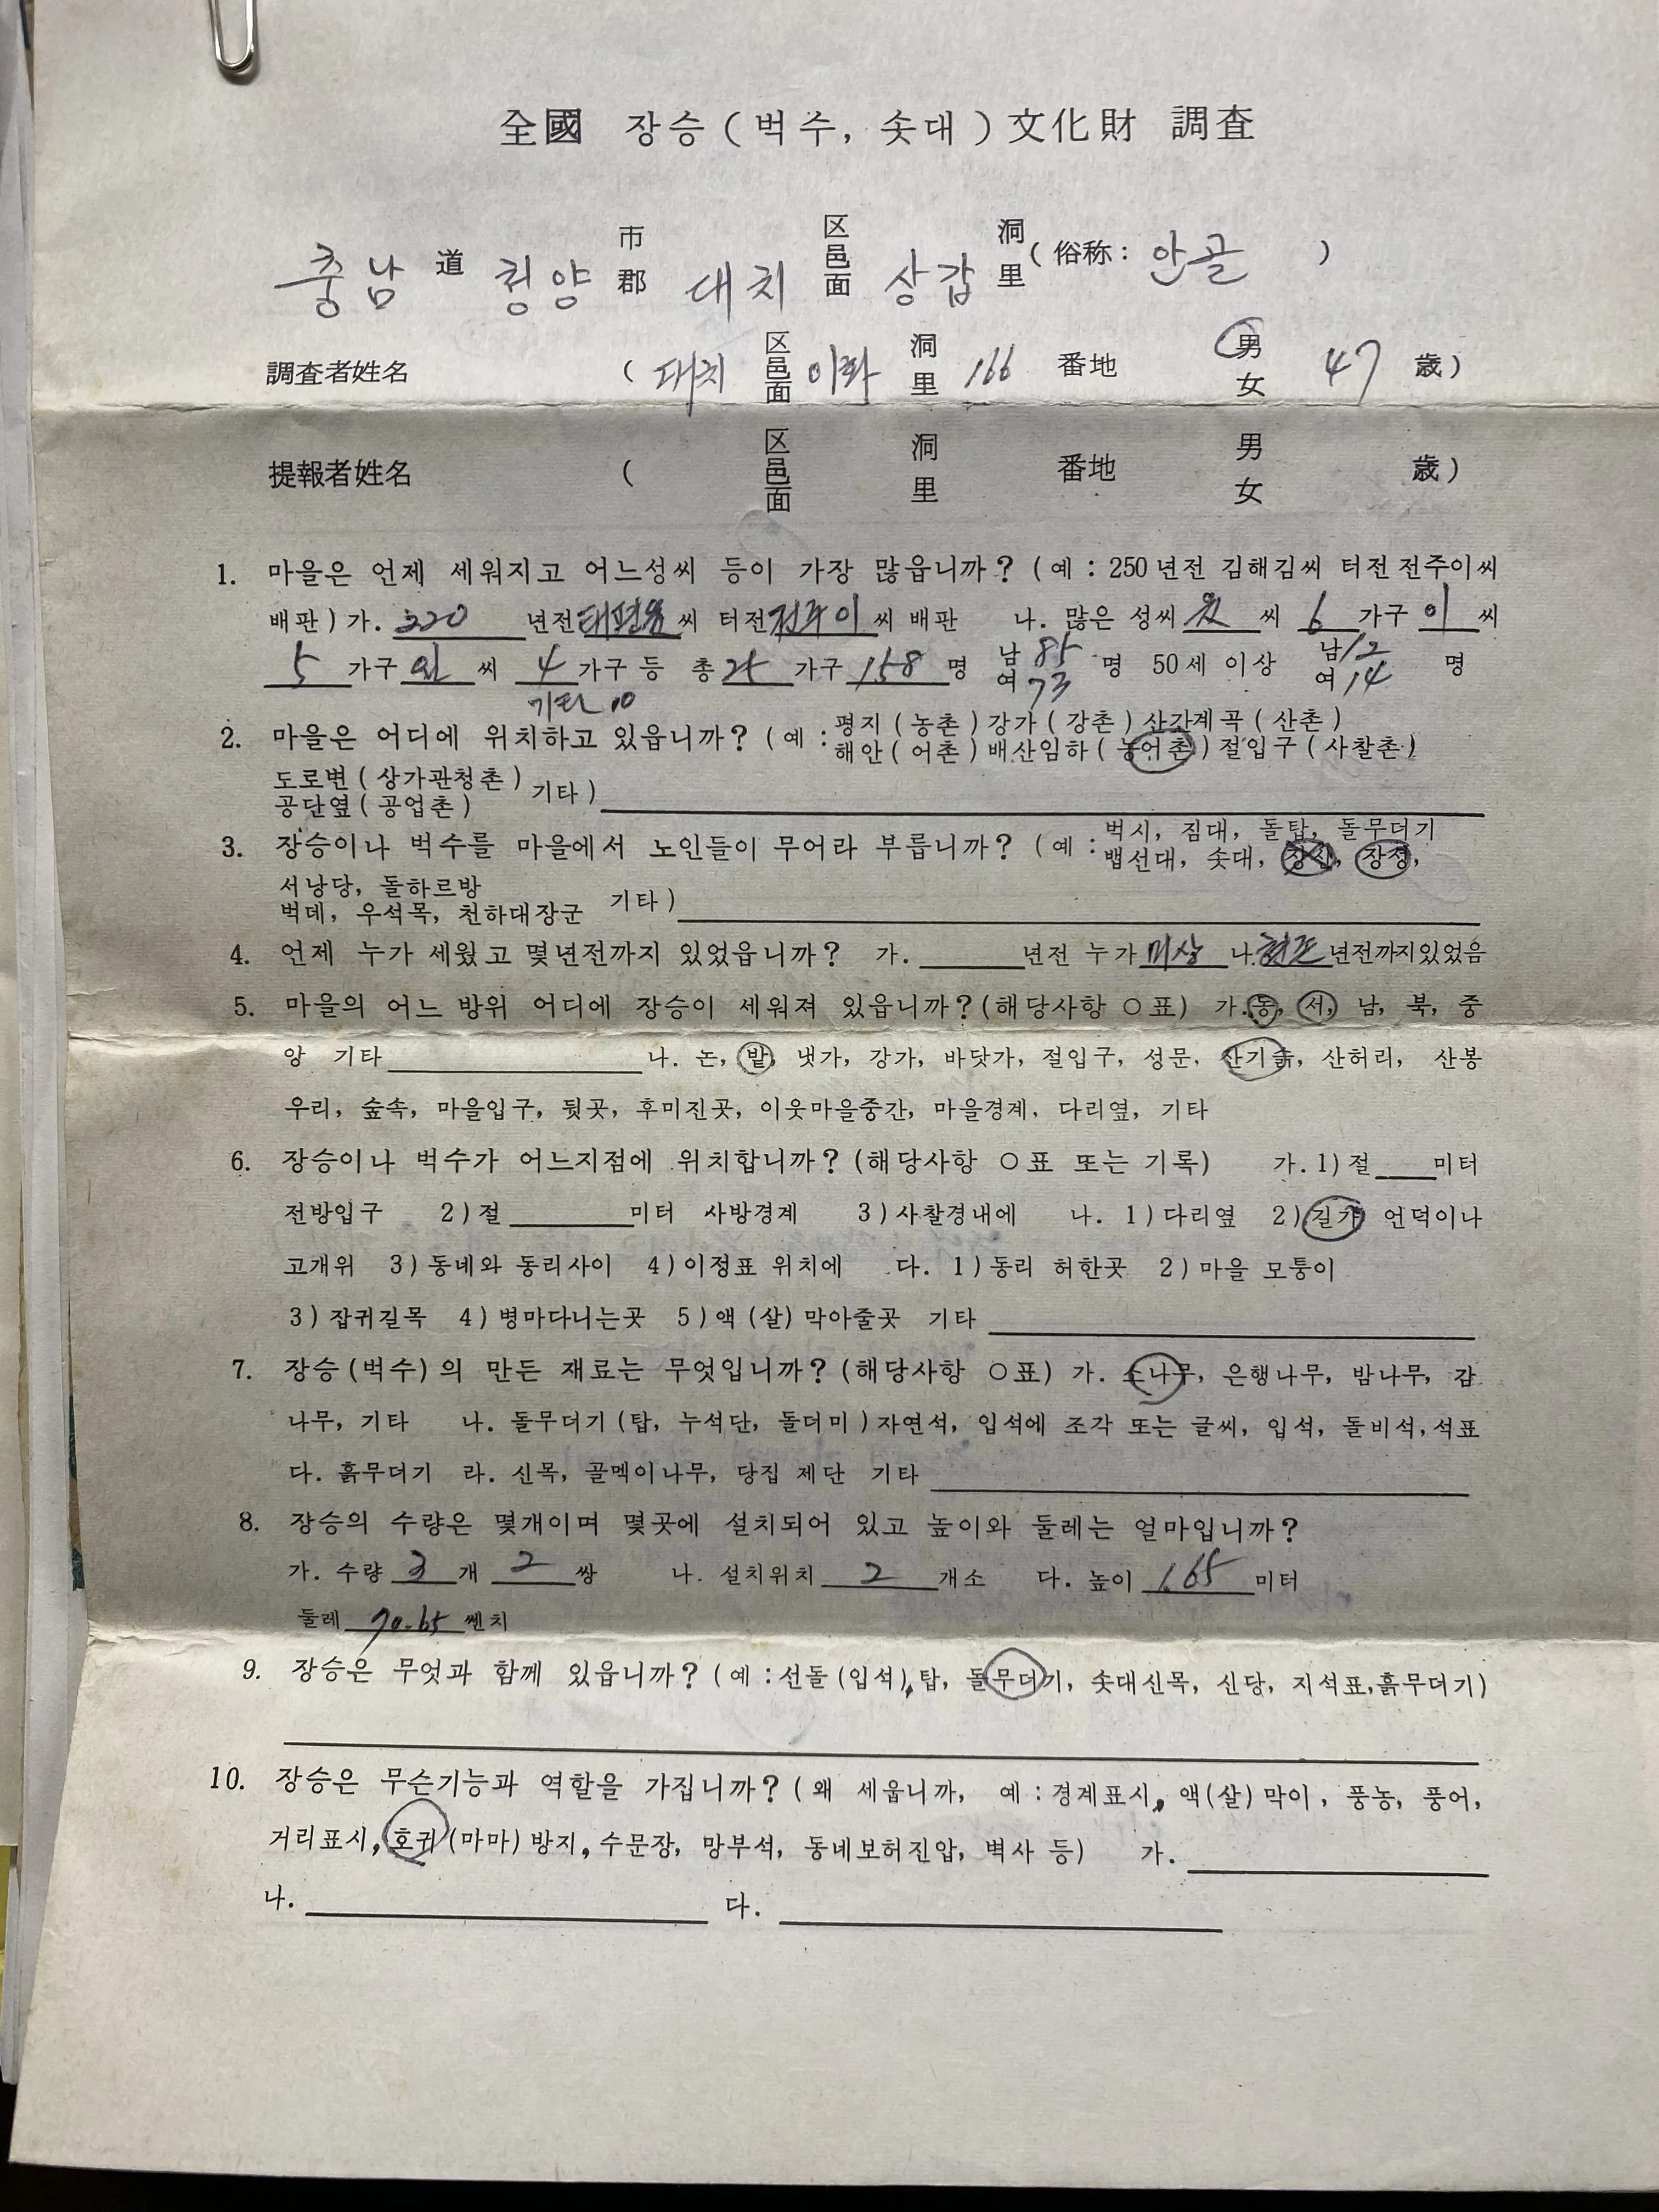 全國 장승(벅수, 솟대)文化財 調査
충남 道 청양 市郡 대치 区邑面 상갑 洞里 (俗称: 안골 )
調査者姓名 ( 대치 区邑面 이화 洞里 166 番地 男女 47 歲)
提報者姓名 ( 区邑面 洞里 番地 男女 歲)
1. 마을은 언제 세워지고 어느성씨 등이 가장 많읍니까? (예 : 250년전 김해김씨 터전 전주이씨
배판) 가. 320 년전 씨 터전 전주이 씨 배판 나. 많은 성씨 씨 6 가구 이 씨
5 가구 씨 4 가구 등 총 25 가구 158 명 남 85 여 73 명 50세 이상 남 12 여 14 명
기타 10
2. 마을은 어디에 위치하고 있읍니까? (예 : 평지(농촌) 강가(강촌) 산간계곡(산촌)
해안(어촌) 배산임하(농어촌) 절입구(사찰촌)
도로변(상가관청촌)
공단옆(공업촌) 기타)
3. 장승이나 벅수를 마을에서 노인들이 무어라 부릅니까? (예 : 벅시, 짐대, 돌탑, 돌무더기
뱁선대, 솟대, 장신, 장성,
서낭당, 돌하르방
벅데, 우석목, 천하대장군 기타)
4. 언제 누가 세웠고 몇년전까지 있었읍니까? 가. 년전 누가 미상 나. 현존 년전까지있었음
5. 마을의 어느 방위 어디에 장승이 세워져 있읍니까?(해당사항 ○표) 가. 동, 서, 남, 북, 중
앙 기타 나. 논, 밭, 냇가, 강가, 바닷가, 절입구, 성문, 산기슭, 산허리, 산봉
우리, 숲속, 마을입구, 뒷곳, 후미진곳, 이웃마을중간, 마을경계, 다리옆, 기타
6. 장승이나 벅수가 어느지점에 위치합니까? (해당사항 ○표 또는 기록) 가. 1)절 미터
전방입구 2)절 미터 사방경계 3)사찰경내에 나. 1)다리옆 2)길가 언덕이나
고개위 3)동네와 동리사이 4)이정표 위치에 다. 1)동리 허한곳 2)마을 모퉁이
3)잡귀길목 4)병마다니는곳 5)액(살) 막아줄곳 기타
7. 장승(벅수)의 만든 재료는 무엇입니까? (해당사항 ○표) 가. 소나무, 은행나무, 밤나무, 감
나무, 기타 나. 돌무더기(탑, 누석단, 돌더미) 자연석, 입석에 조각 또는 글씨, 입석, 돌비석, 석표
다. 흙무더기 라. 신목, 골멕이나무, 당집 제단 기타
8. 장승의 수량은 몇개이며 몇곳에 설치되어 있고 높이와 둘레는 얼마입니까?
가. 수량 3 개 2 쌍 나. 설치위치 2 개소 다. 높이 1.65 미터
둘레 70.65 쎈치
9. 장승은 무엇과 함께 있읍니까? (예 : 선돌(입석), 탑, 돌무더기, 솟대신목, 신당, 지석표, 흙무더기)
10. 장승은 무슨기능과 역할을 가집니까? (왜 세웁니까, 예 : 경계표시, 액(살) 막이, 풍농, 풍어,
거리표시, 호귀(마마) 방지, 수문장, 망부석, 동네보허진압, 벽사 등) 가.
나. 다.